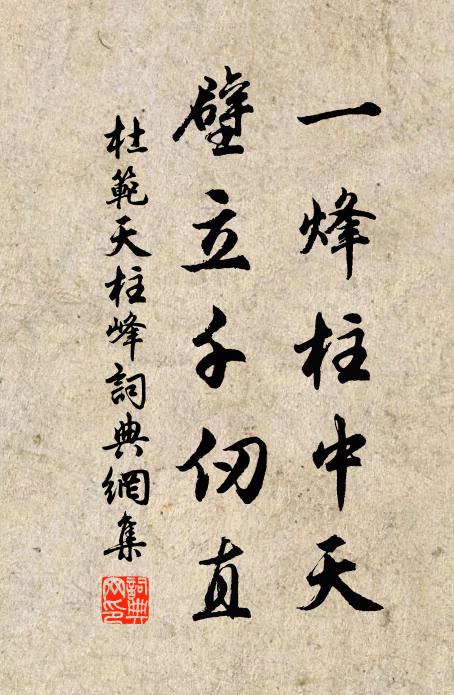 一烽柱中天
壁立千仞直
杜範天柱峰詞典網集
詞典網印